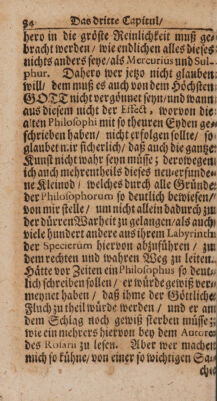 94 Das dritte Capitul/
hero in die gröste Reinlichkeit muß ge-
bracht werden/ wie endlichen alles dieses
nichts anders seye/als Mercurius und Sul-
phur. Dahero wer jetzo nicht glauben
will/ dem muß es auch von dem Höchsten
GOTT nicht vergönnet seyn/und wann
aus diesem nicht der Effect, worvon die
alten Philosophi mit so theuren Eyden ge-
schrieben haben/ nicht erfolgen sollte/ so
glaubet n.ir sicherlich/ daß auch die gantze
Kunst nicht wahr seyn müsse; derowegen
ich auch mehrentheils dieses neu-erfunde-
ne Kleinod/ welches durch alle Gründe
der Philosophorum so deutlich bewiesen/
von mir stelle/ um nicht allein dadurch zu
der dürren Warheit zu gelangen/als auch
viele hundert andere aus ihrem Labyrinth
der Specierum hiervon abzuführen/ zu
dem rechten und wahren Weg zu leiten.
Hätte vor Zeiten ein Philosophus so deut-
lich schreiben sollen/ er würde gewiß ver-
meynet haben/ daß ihme der Göttliche
Fluch zu theil würde werden/ und er am
dem Schlag noch gewiß sterben müsse;
wie ein mehrers hiervon bey dem Autore
des Rosarii zu lesen. Aber wer machet
mich so kühne/ von einer so wichtigen Sa-
che